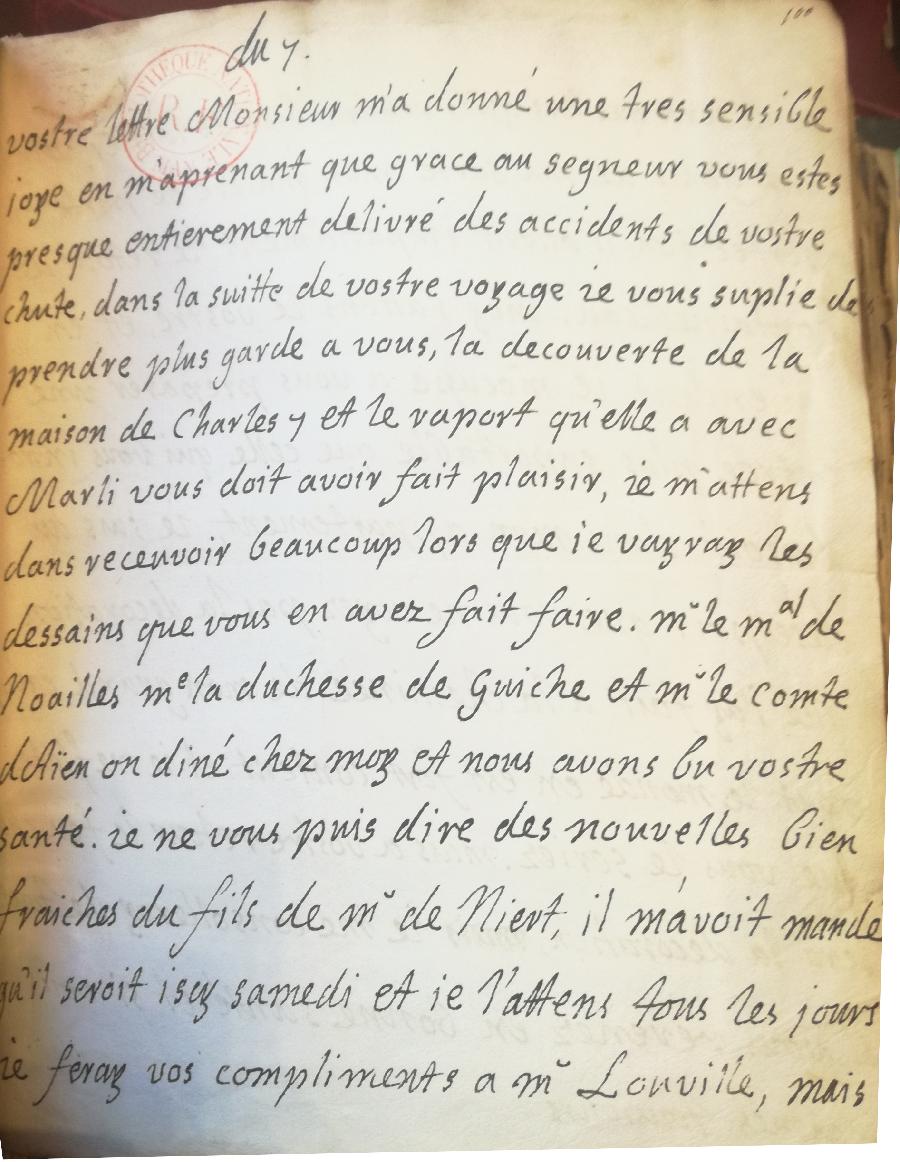 100
du 7.
vostre lettre Monsieur m'a donné une tres sensible
joye en m'aprenant que grace au segneur vous estes
presque entierement delivré des accidents de vostre
chute, dans la suitte de vostre voyage ie vous suplie de
prendre plus garde a vous, la decouverte de la
maison de Charles 7 et le raport qu'elle a avec
Marli vous doit avoir fait plaisir, ie m'attens
dans recenvoir beaucoup lors que ie vayray les
dessains que vous en avez fait faire. mr le mal de
Noailles me la duchesse de Guiche et mr le comte
dAïen on diné chez moy et nous avons bu vostre
santé. ie ne vous puis dire des nouvelles bien
fraiches du fils de mr de Niert, il m'avoit mandé
qu'il seroit iscy samedi et ie l'attens tous les jours
ie feray vos compliments a mr Louville, mais